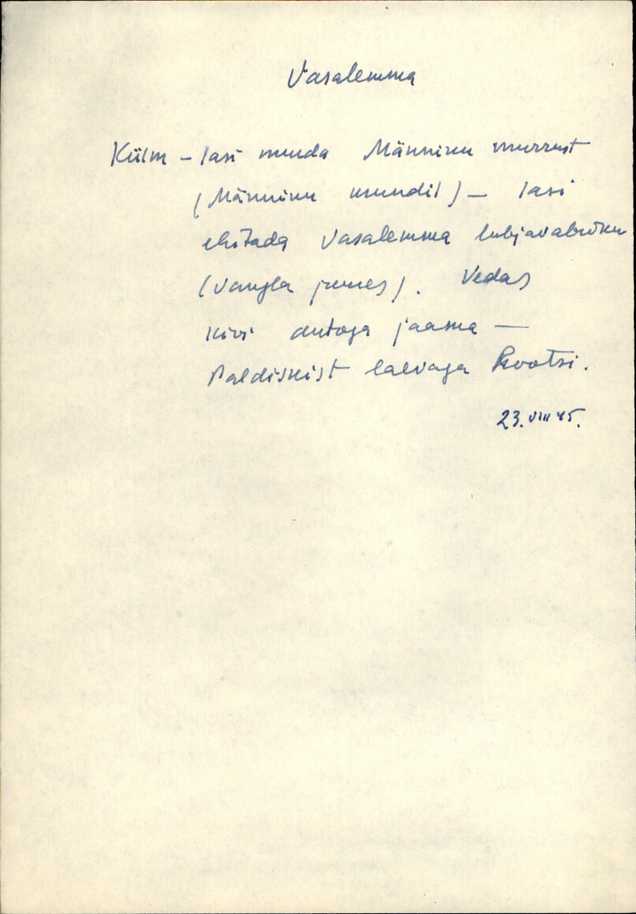 Vasalemma
Külm – lasi murda Männiku murrust
(Männiku mundil) – lasi
ehitada Vasalemma lubjavabriku
(vangla juures). Vedas
kivi autoga jaama –
Paldiskist laevaga Rootsi.
23. VIII 85.